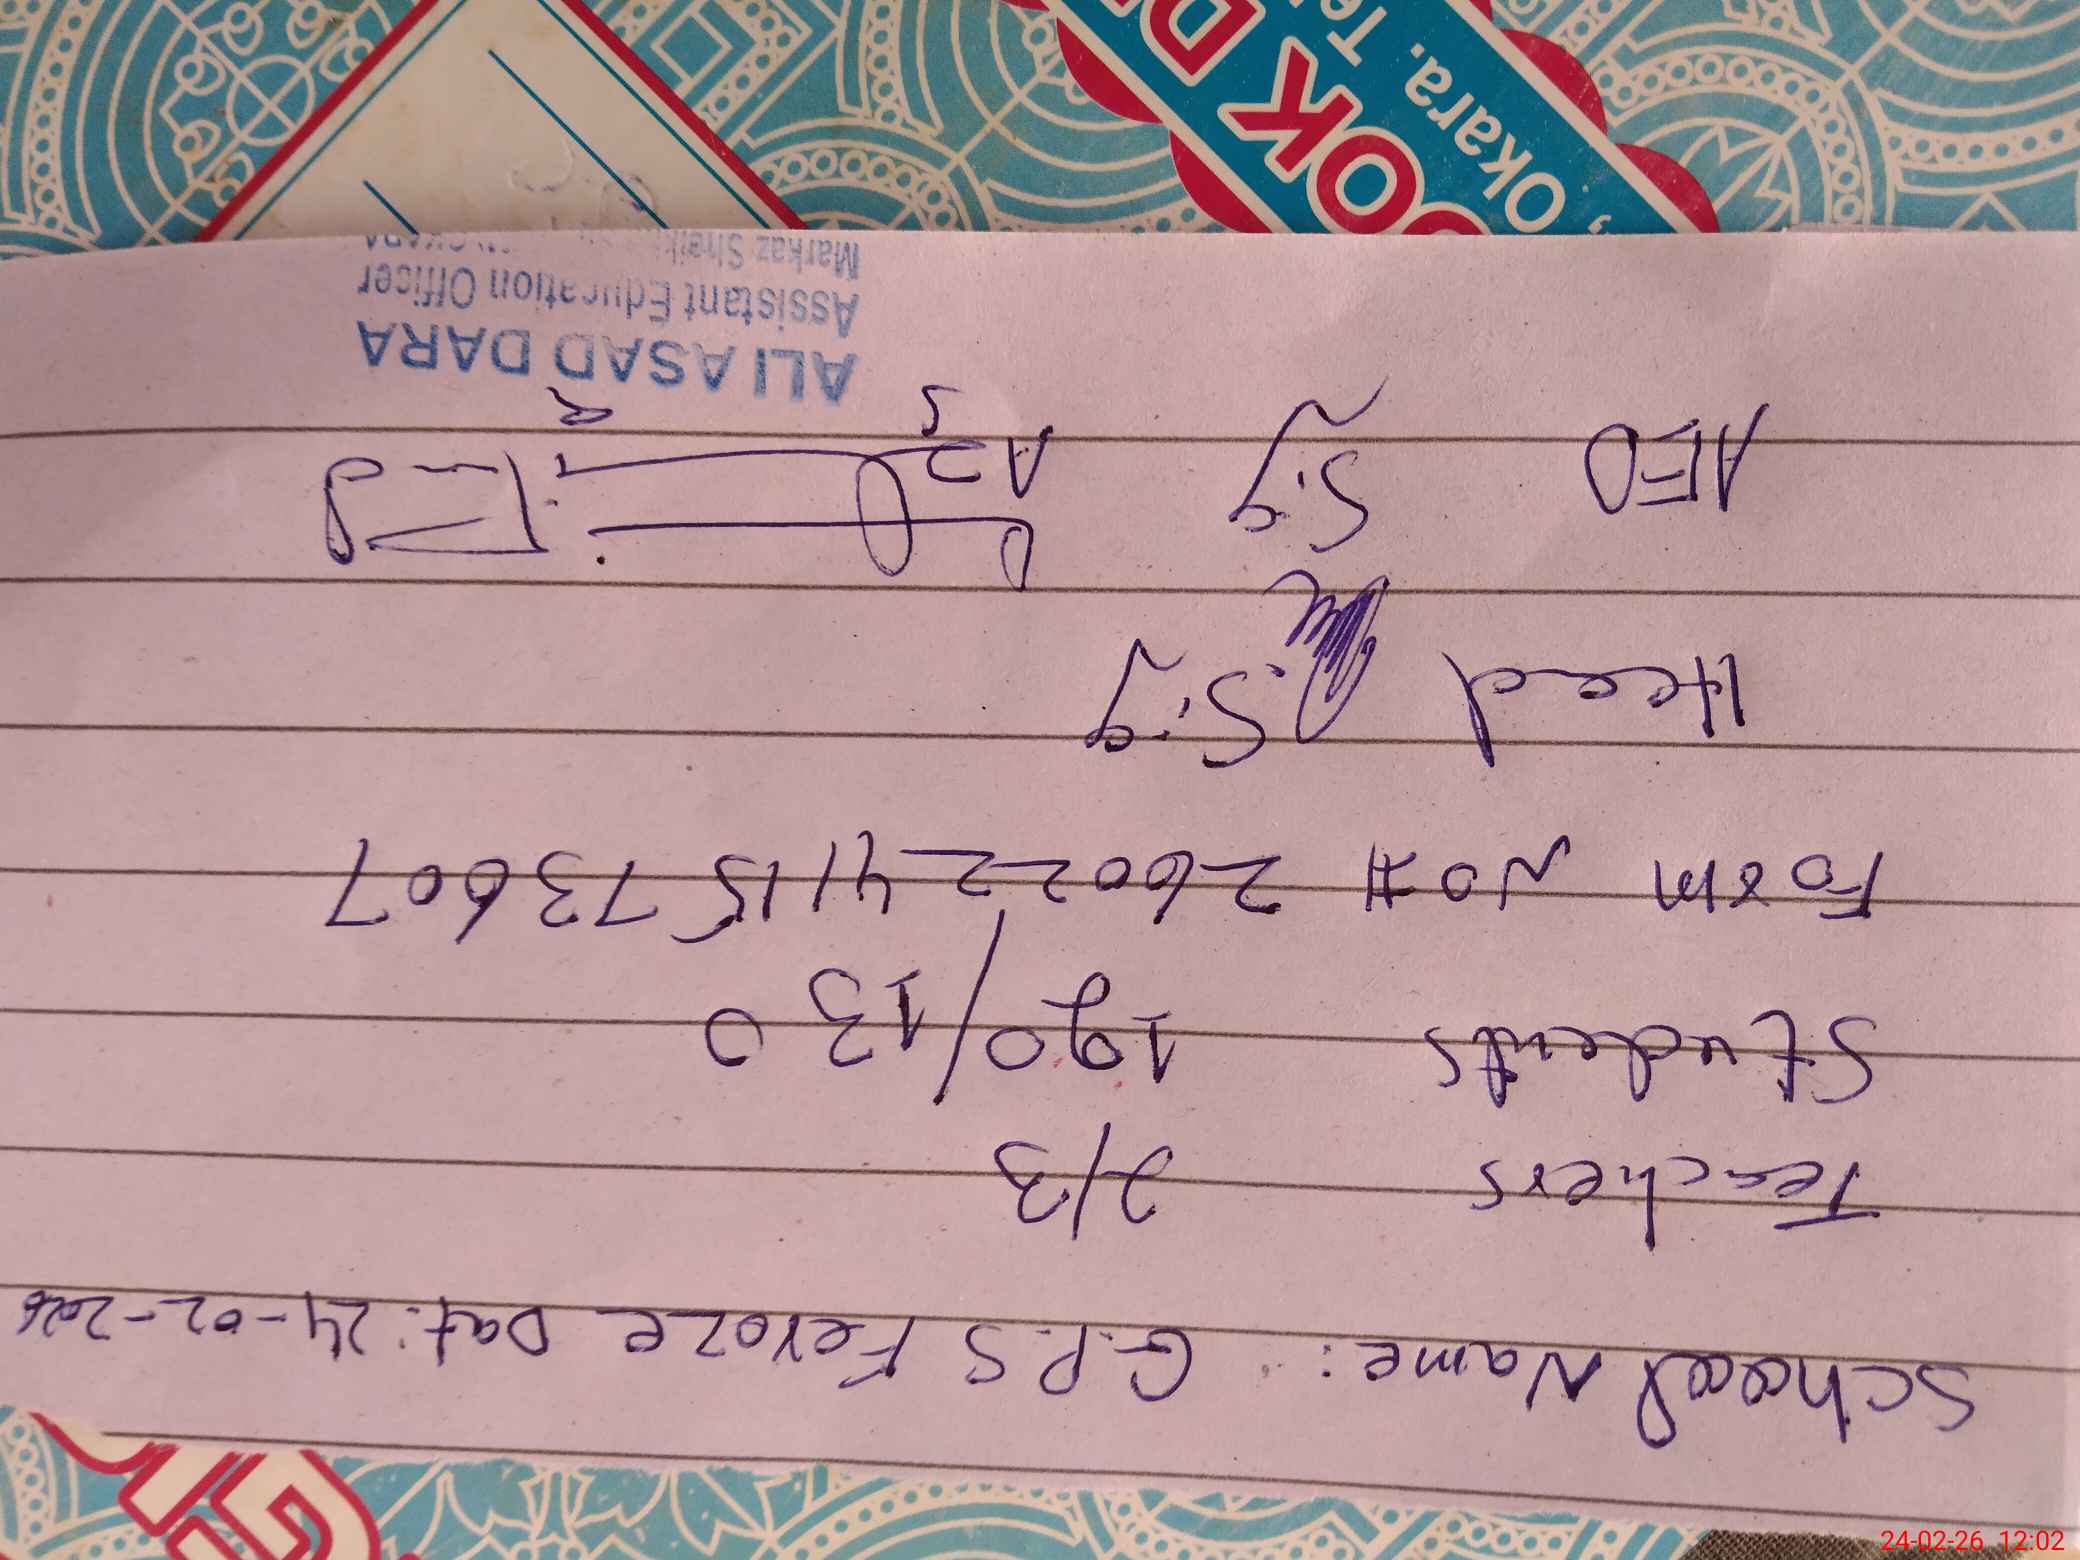 School Name: G.P.S Feroze Dat: 24-02-2026
Teachers 2/3
Students 190/130
Form No # 26022411573607
Head Sig
AEO Sig
ALI ASAD DARA
Assistant Education Officer
Markaz
OOK D
, Okara. Te
24-02-26 12:02